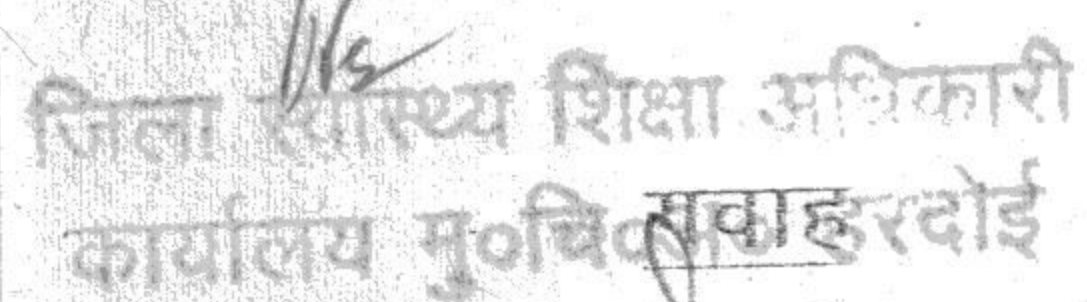 जिला स्वास्थ्य शिक्षा अधिकारी
कार्यालय मु०चि०अ० हरदोई
गवाह